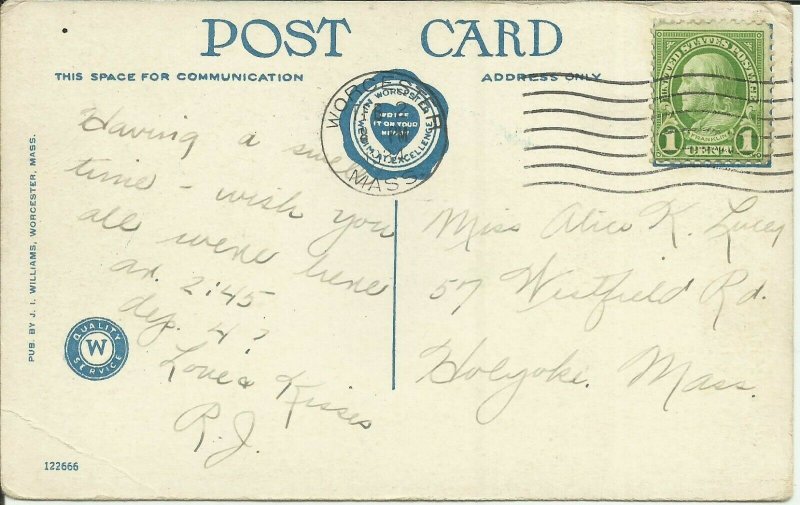 POST CARD
THIS SPACE FOR COMMUNICATION
ADDRESS ONLY
WORCESTER
MASS.
UNITED STATES POSTAGE
FRANKLIN
1 1
Having a swell
time - wish you
all were here
ar. 2:45
dep. 4?
Love & Kisses
R.J.
Miss Alice K. Lucey
57 Westfield Rd.
Holyoke. Mass.
PUB. BY J. I. WILLIAMS, WORCESTER, MASS.
QUALITY
W
SERVICE
122666